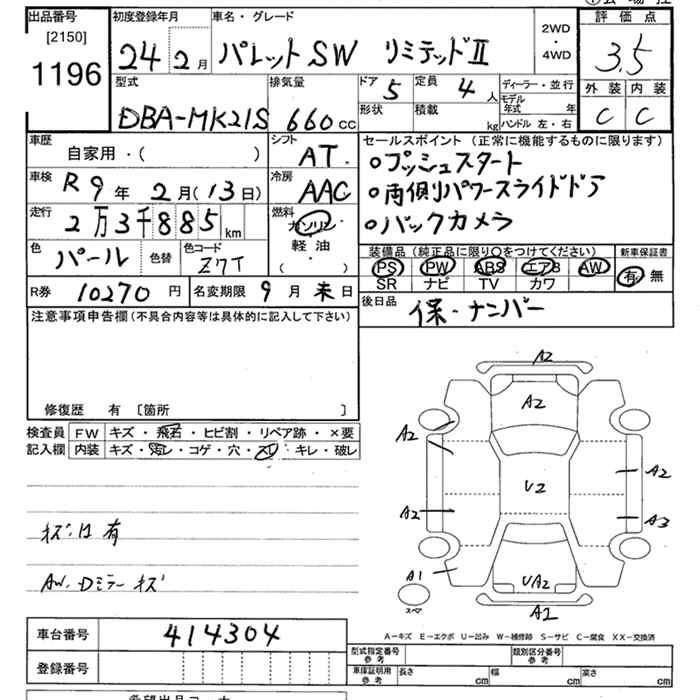 出品番号
[2150]
1196
初度登録年月
24年2月
車名・グレード
パレットSW リミテッドⅡ
2WD
・
4WD
評価点
3.5
外装 内装
C C
型式
DBA-MK21S
排気量
660cc
ドア 5
定員 4人
形状
積載 kg
ディーラー・並行
モデル年式 年
ハンドル 左・右
車歴
自家用・( )
シフト
AT
車検
R9年2月(13日)
冷房
AAC
走行
2万3千885km
燃料
ガソリン
軽油
( )
色
パール
色替
色コード
Z7T
R券 10270円
名変期限 9月末日
セールスポイント(正常に機能するものに限ります)
○プッシュスタート
○両側パワースライドドア
○バックカメラ
装備品(純正品に限り○をつけてください)
PS PW ABS エアB AW
SR ナビ TV カワ
新車保証書
有・無
後日品
保・ナンバー
注意事項申告欄(不具合内容等は具体的に記入して下さい)
修復歴 有 〔箇所 〕
検査員記入欄
FW キズ・飛石・ヒビ割・リペア跡・×要
内装 キズ・汚レ・コゲ・穴・スレ・キレ・破レ
AW.Dミラーキズ
A2
A2
A2
A2
U2
A2
A3
A1
UA2
A1
スペア
A-キズ E-エクボ U-凹み W-補修跡 S-サビ C-腐食 XX-交換済
車台番号
414304
登録番号
型式指定番号
参考
類別区分番号
参考
車庫証明用
参考
長さ cm
幅 cm
高さ cm